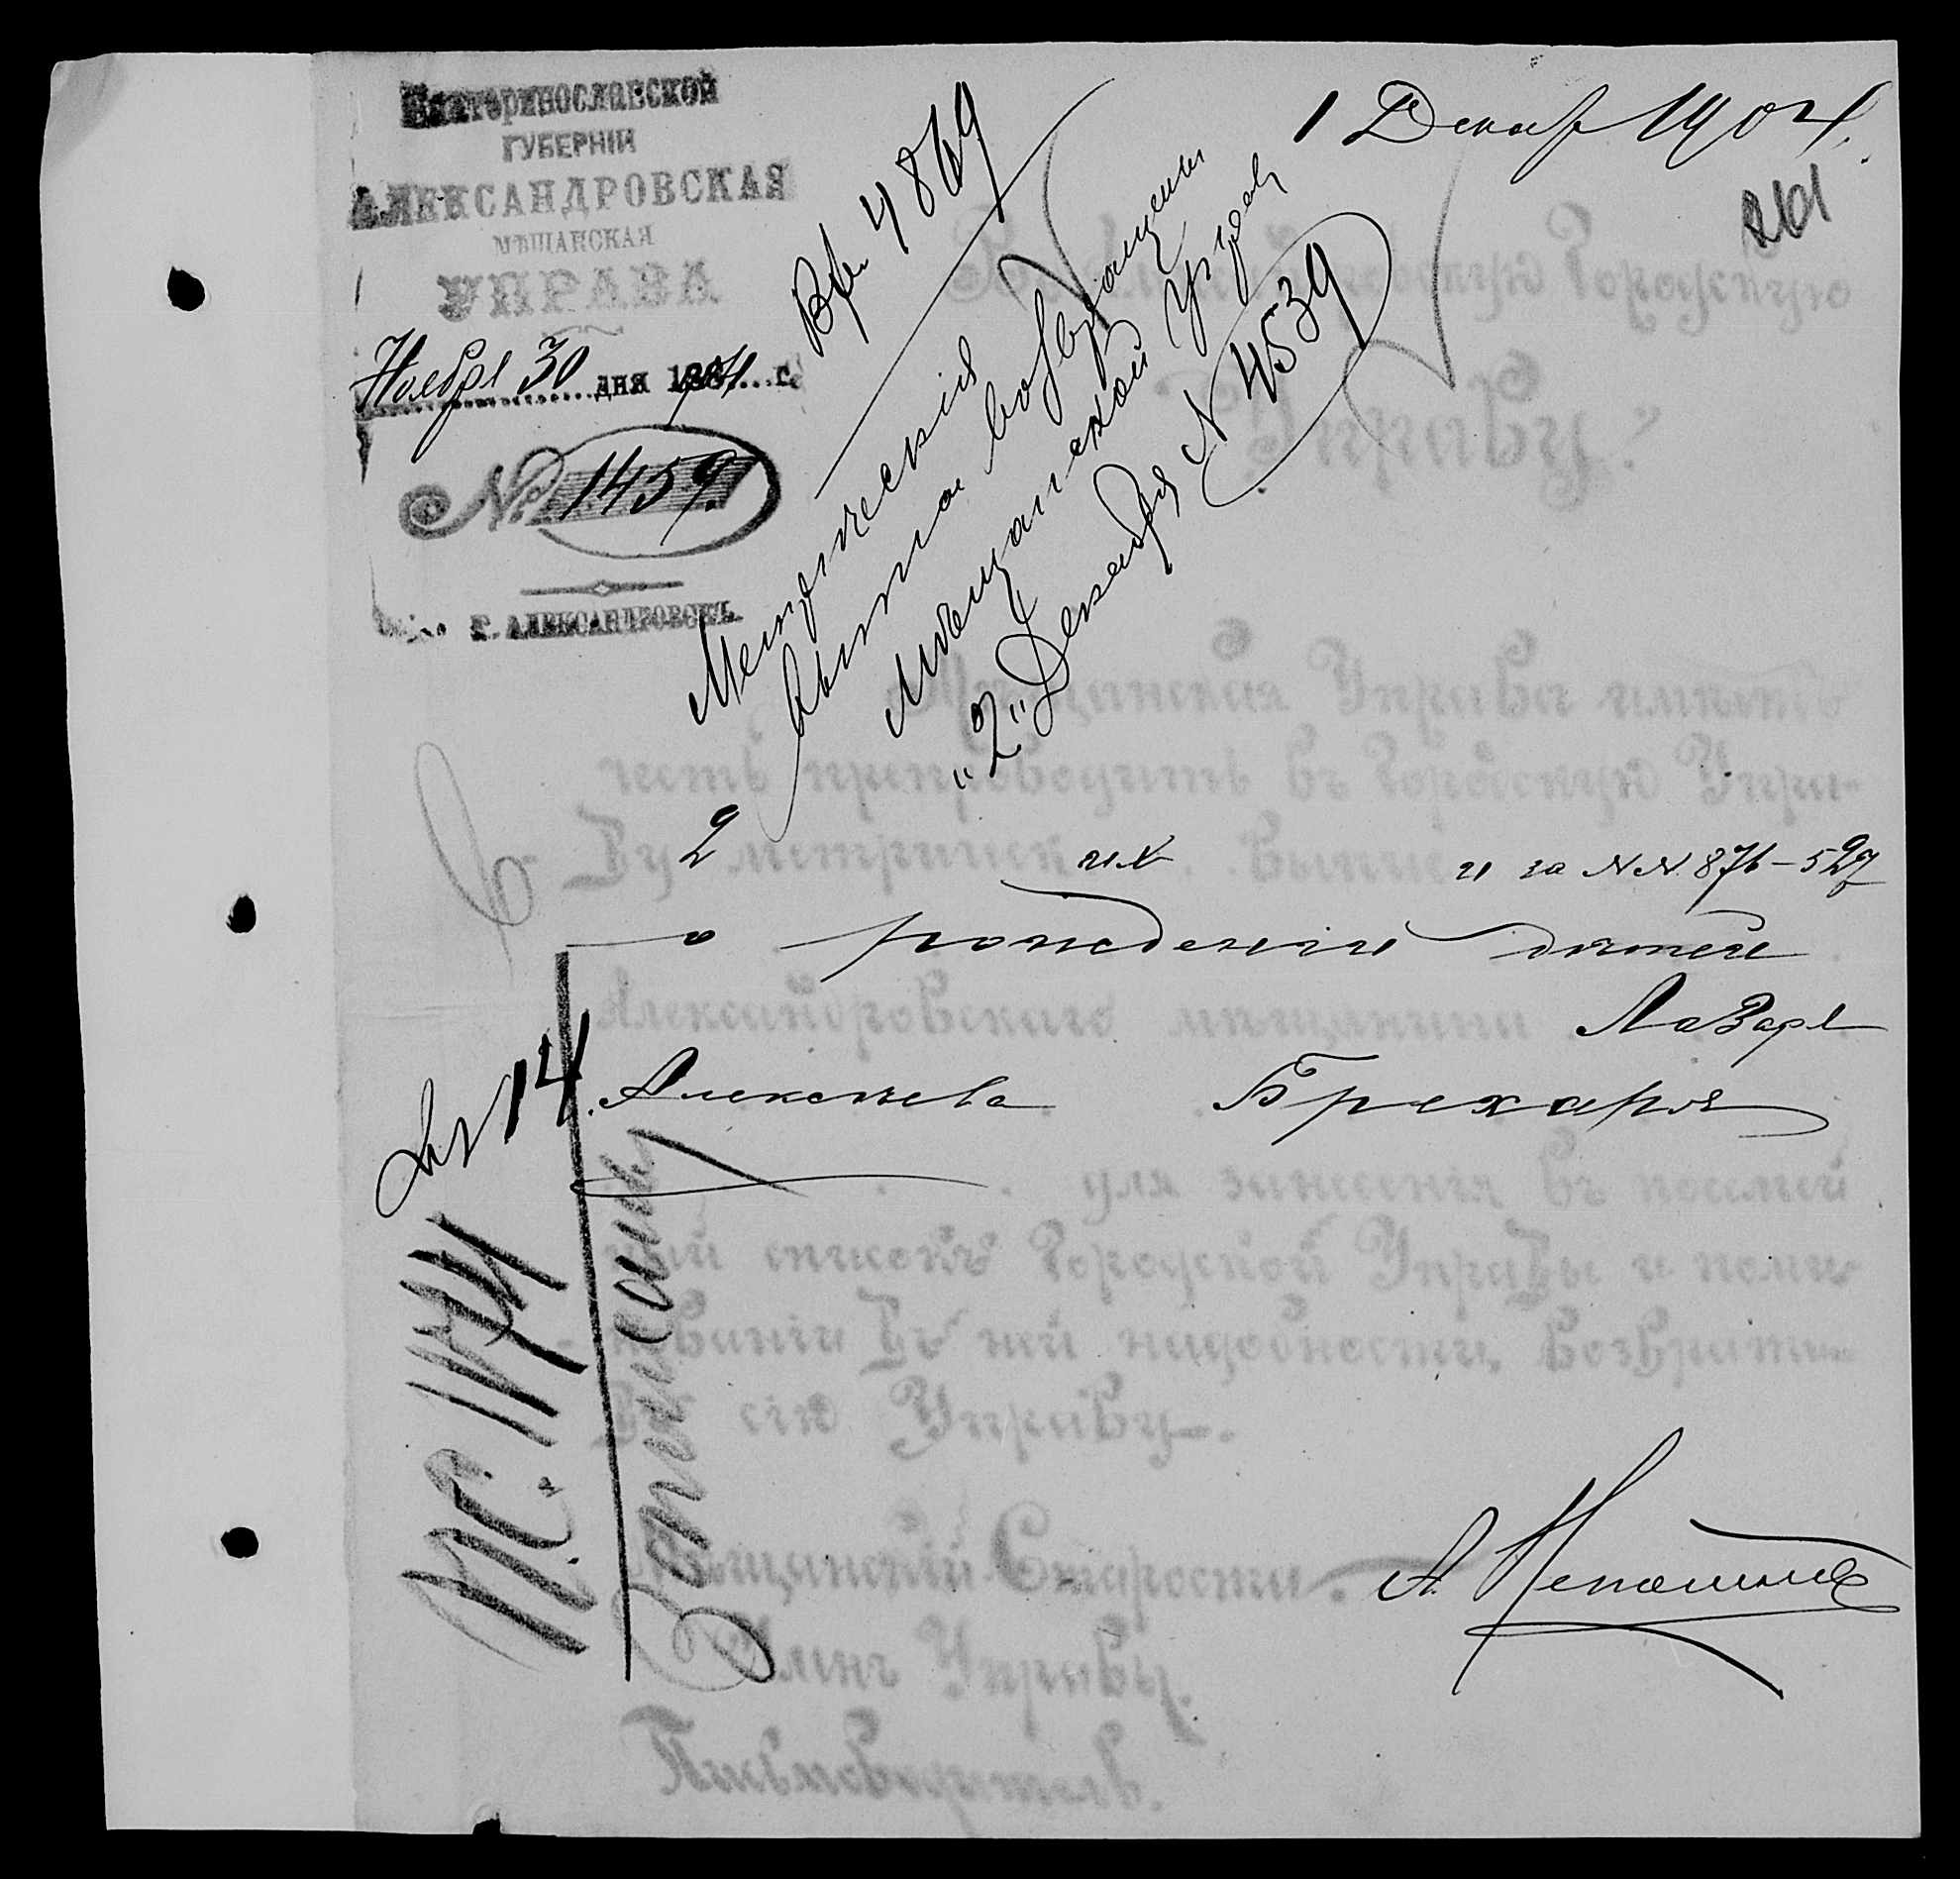 Екатеринославской
ГУБЕРНІИ
АЛЕКСАНДРОВСКАЯ
МѢЩАНСКАЯ
УПРАВА
Ноября 30 дня 1904 г.
№ 1459.
Г. АЛЕКСАНДРОВСКЪ.
Вх. 4869
1 Декаб 1904.
261
Метрическія
выписи возвращены
Мѣщанской Управѣ
"2" Декабря N 4539
Въ Александровскую Городскую
Управу.
Мѣщанская Управа имѣетъ
честь препроводить въ Городскую Упра-
ву 2 метрическихъ выписи за NN 876-527
о рожденіи дѣтей
Александровскаго мѣщанина Лазаря
Алексѣева Брехаря
для занесенія въ посемей
ный списокъ Городской Управы и поми-
нованіи въ ней надобности, возврати
въ сію Управу.
14
Записаны
Мѣщанскій Староста
Членъ Управы.
Письмоводитель.